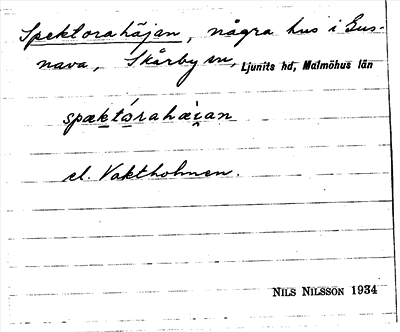 Spektorahäjan, några hus i Gus-
nava, Skårby sn, Ljunits hd, Malmöhus län
spæktórahæi̯an
el. Vaktholmen.
NILS NILSSON 1934